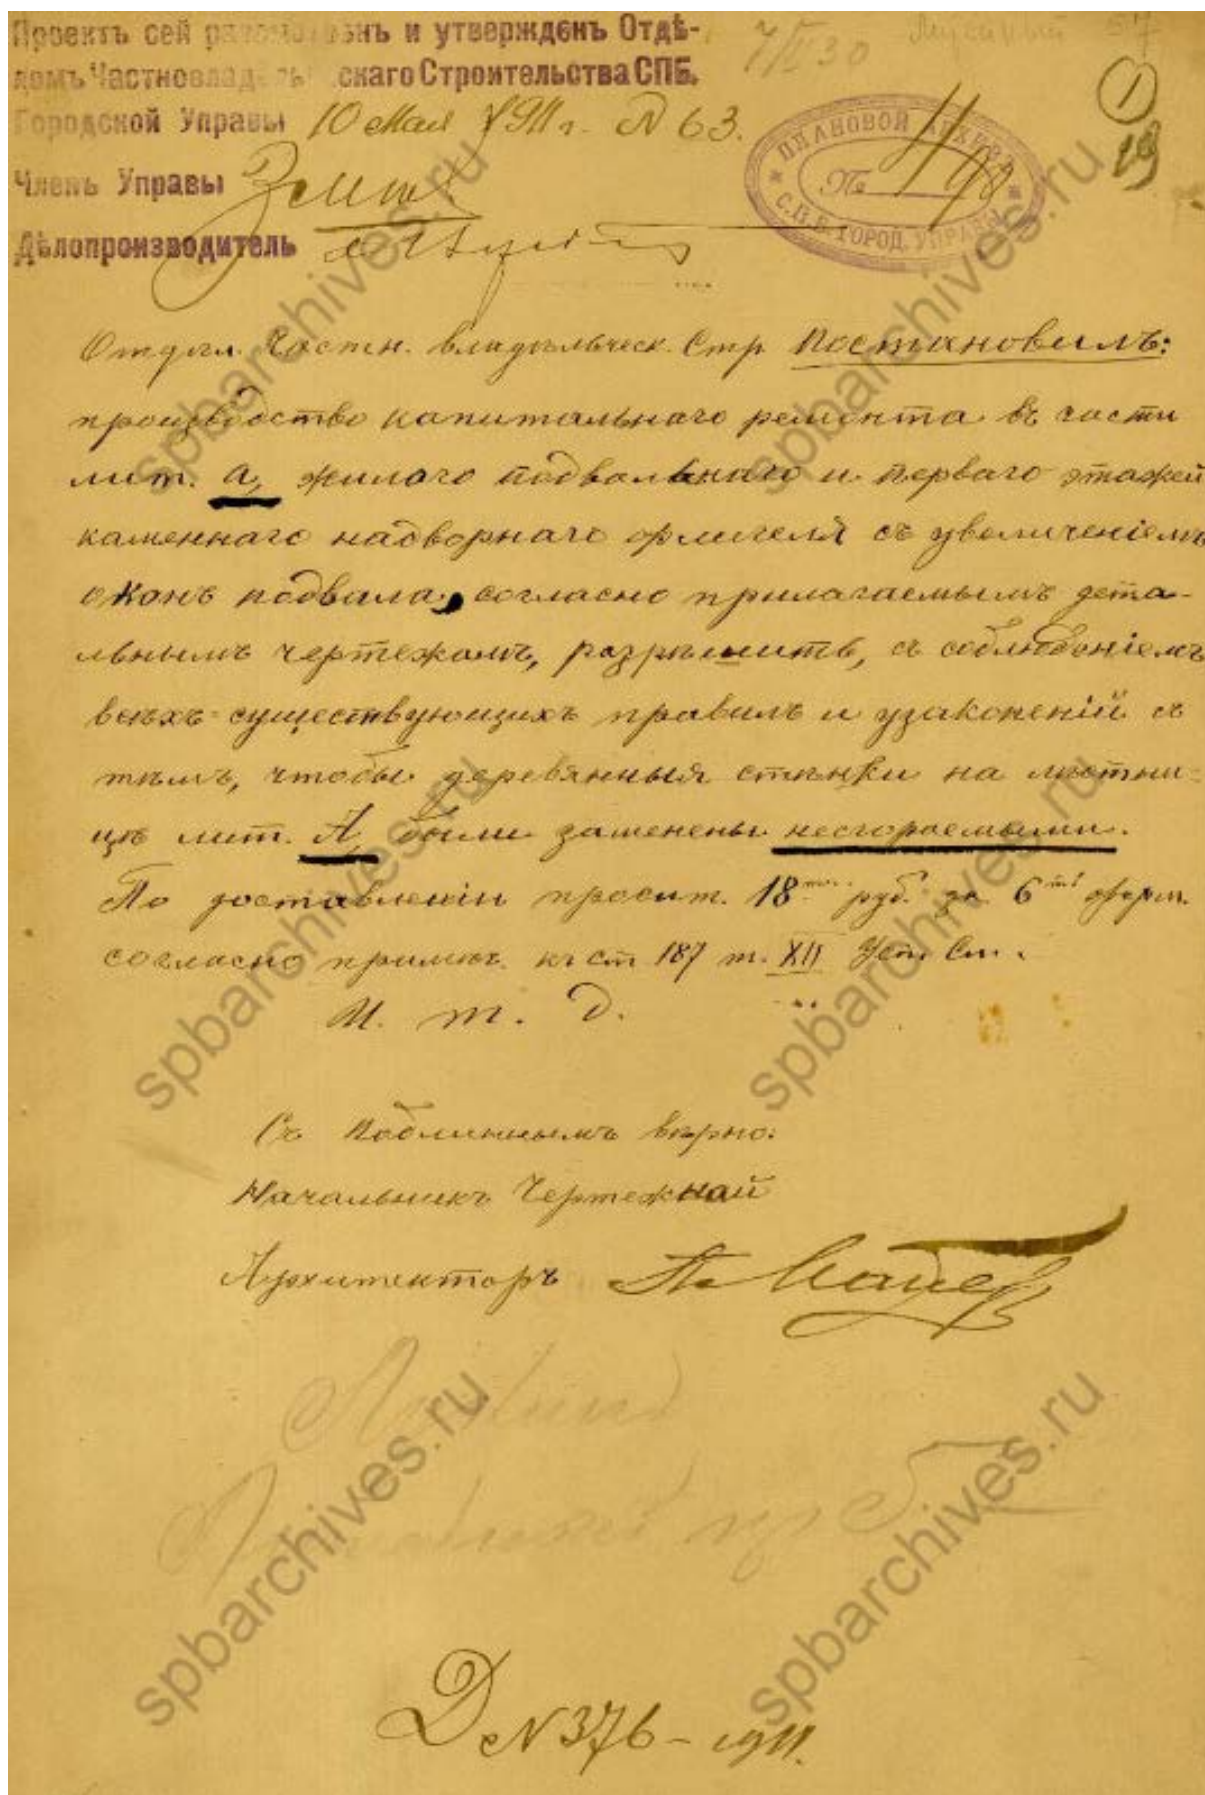 Проектъ сей разсмотрѣнъ и утвержденъ Отдѣ-
ломъ Частновладѣльческаго Строительства СПБ.
Городской Управы 10 Мая 1911 г. № 63.
Членъ Управы
Дѣлопроизводитель
7/II 30
Мучной
1
19
ПЛАНОВОЙ АРХИВЪ
№
С.П.Б. ГОРОД. УПРАВЫ
Отдѣл. Частн. владѣльческ. Стр. Постановилъ:
производство капитальнаго ремонта въ части
лит. а, жилого подвальнаго и перваго этажей
каменнаго надворнаго флигеля съ увеличеніемъ
оконъ подвала, согласно прилагаемымъ дета-
льнымъ чертежамъ, разрѣшить, съ соблюденіемъ
всѣхъ существующихъ правилъ и узаконеній съ
тѣмъ, чтобы деревянныя стѣнки на лѣстни-
цѣ лит. А, были заменены несгораемыми.
По доставленіи просит. 18 ти руб. за 6 ть форм.
согласно примѣч. къ ст 187 т. XII Уст. См.
И. т. д.
Съ подлиннымъ вѣрно:
Начальникъ Чертежной
Архитекторъ
Д № 376 - 1911.
spbarchives.ru
spbarchives.ru
spbarchives.ru
spbarchives.ru
spbarchives.ru
spbarchives.ru